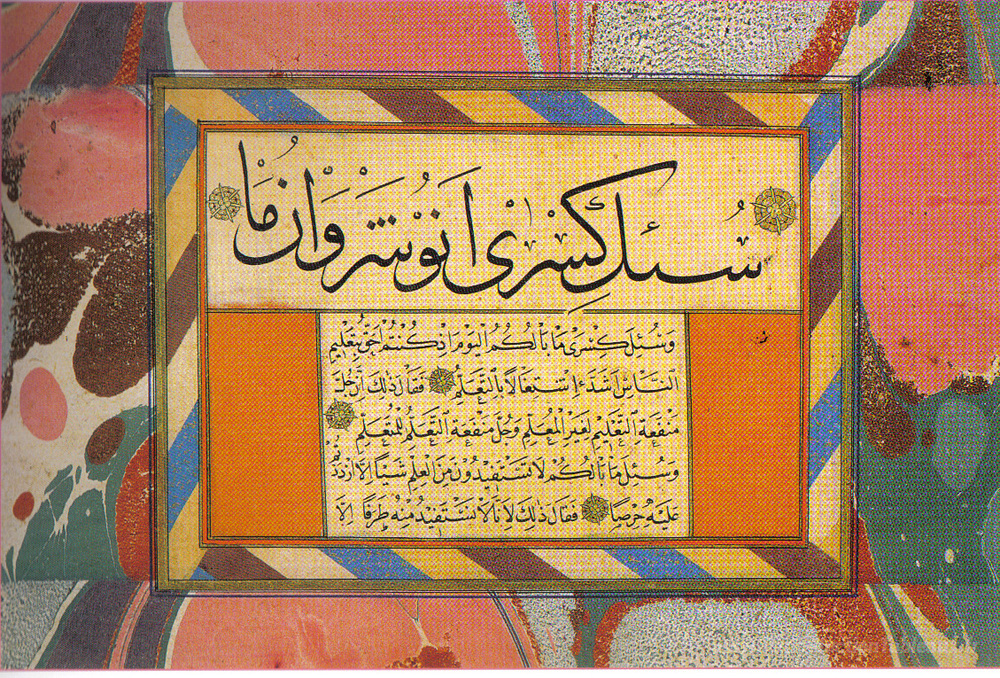 سُئِلَ كِسْرٰى اَنُوشَرْوَانُ مَا
وَسُئِلَ كِسْرٰى مَا بَالُكُمُ الْيَوْمَ اِذْ كُنْتُمْ اَحَقَّ بِتَعْلِيمِ
النَّاسِ اَشَدَّ اِشْتِغَالًا بِالتَّعَلُّمِ فَقَالَ ذٰلِكَ اَنَّ جُلَّ
مَنْفَعَةِ التَّعْلِيْمِ لِغَيْرِ الْمُعَلِّمِ وَجُلَّ مَنْفَعَةِ التَّعَلُّمِ لِلْمُتَعَلِّمِ
وَسُئِلَ مَا بَالُكُمْ لَا تَسْتَفِيْدُوْنَ مِنَ الْعِلْمِ شَيْئًا اِلَّا ازْدَدْتُمْ
عَلَيْهِ حِرْصًا فَقَالَ ذٰلِكَ لِاَنَّا لَا نَسْتَفِيْدُ مِنْهُ طَرَفًا اِلَّا